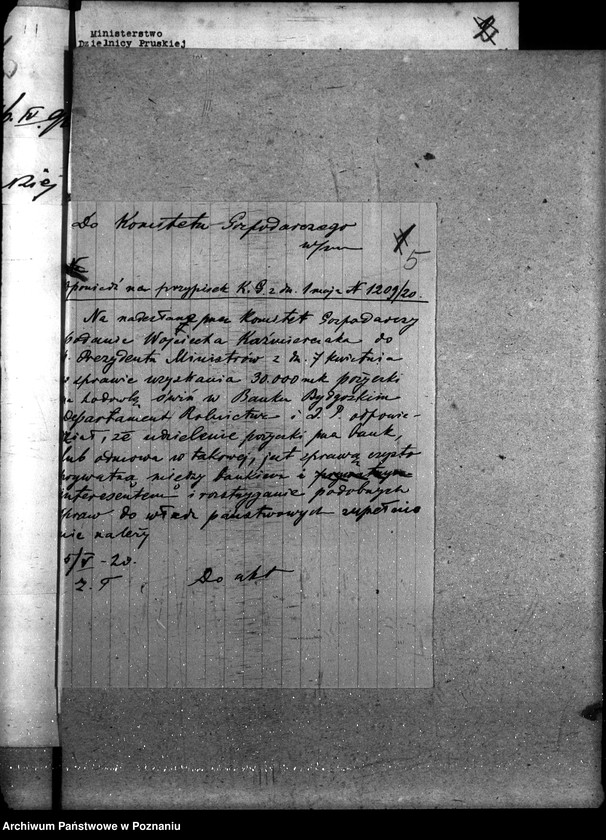 Ministerstwo
Dzielnicy Pruskiej
Do Komitetu Gospodarczego
w/m
5
powiedź na przypisek K.G. z dn. 1 maja № 1209/20.
Na nadesłane przez Komitet Gospodarczy
podanie Wojciecha Kaźmierczaka do
p. Prezydenta Ministrów z dn. 7 kwietnia
w sprawie uzyskania 30.000 mk pożyczki
na hodowlę świń w Banku Bydgoskim
Departament Rolnictwa i D. P. odpowie-
dział, że udzielenie pożyczki przez bank,
lub odmowa w takowej, jest sprawą czysto
prywatną między bankiem i
interesentem i rozstrzyganie podobnych
spraw do władz państwowych zupełnie
nie należy
5/V - 20.
Do akt
Archiwum Państwowe w Poznaniu